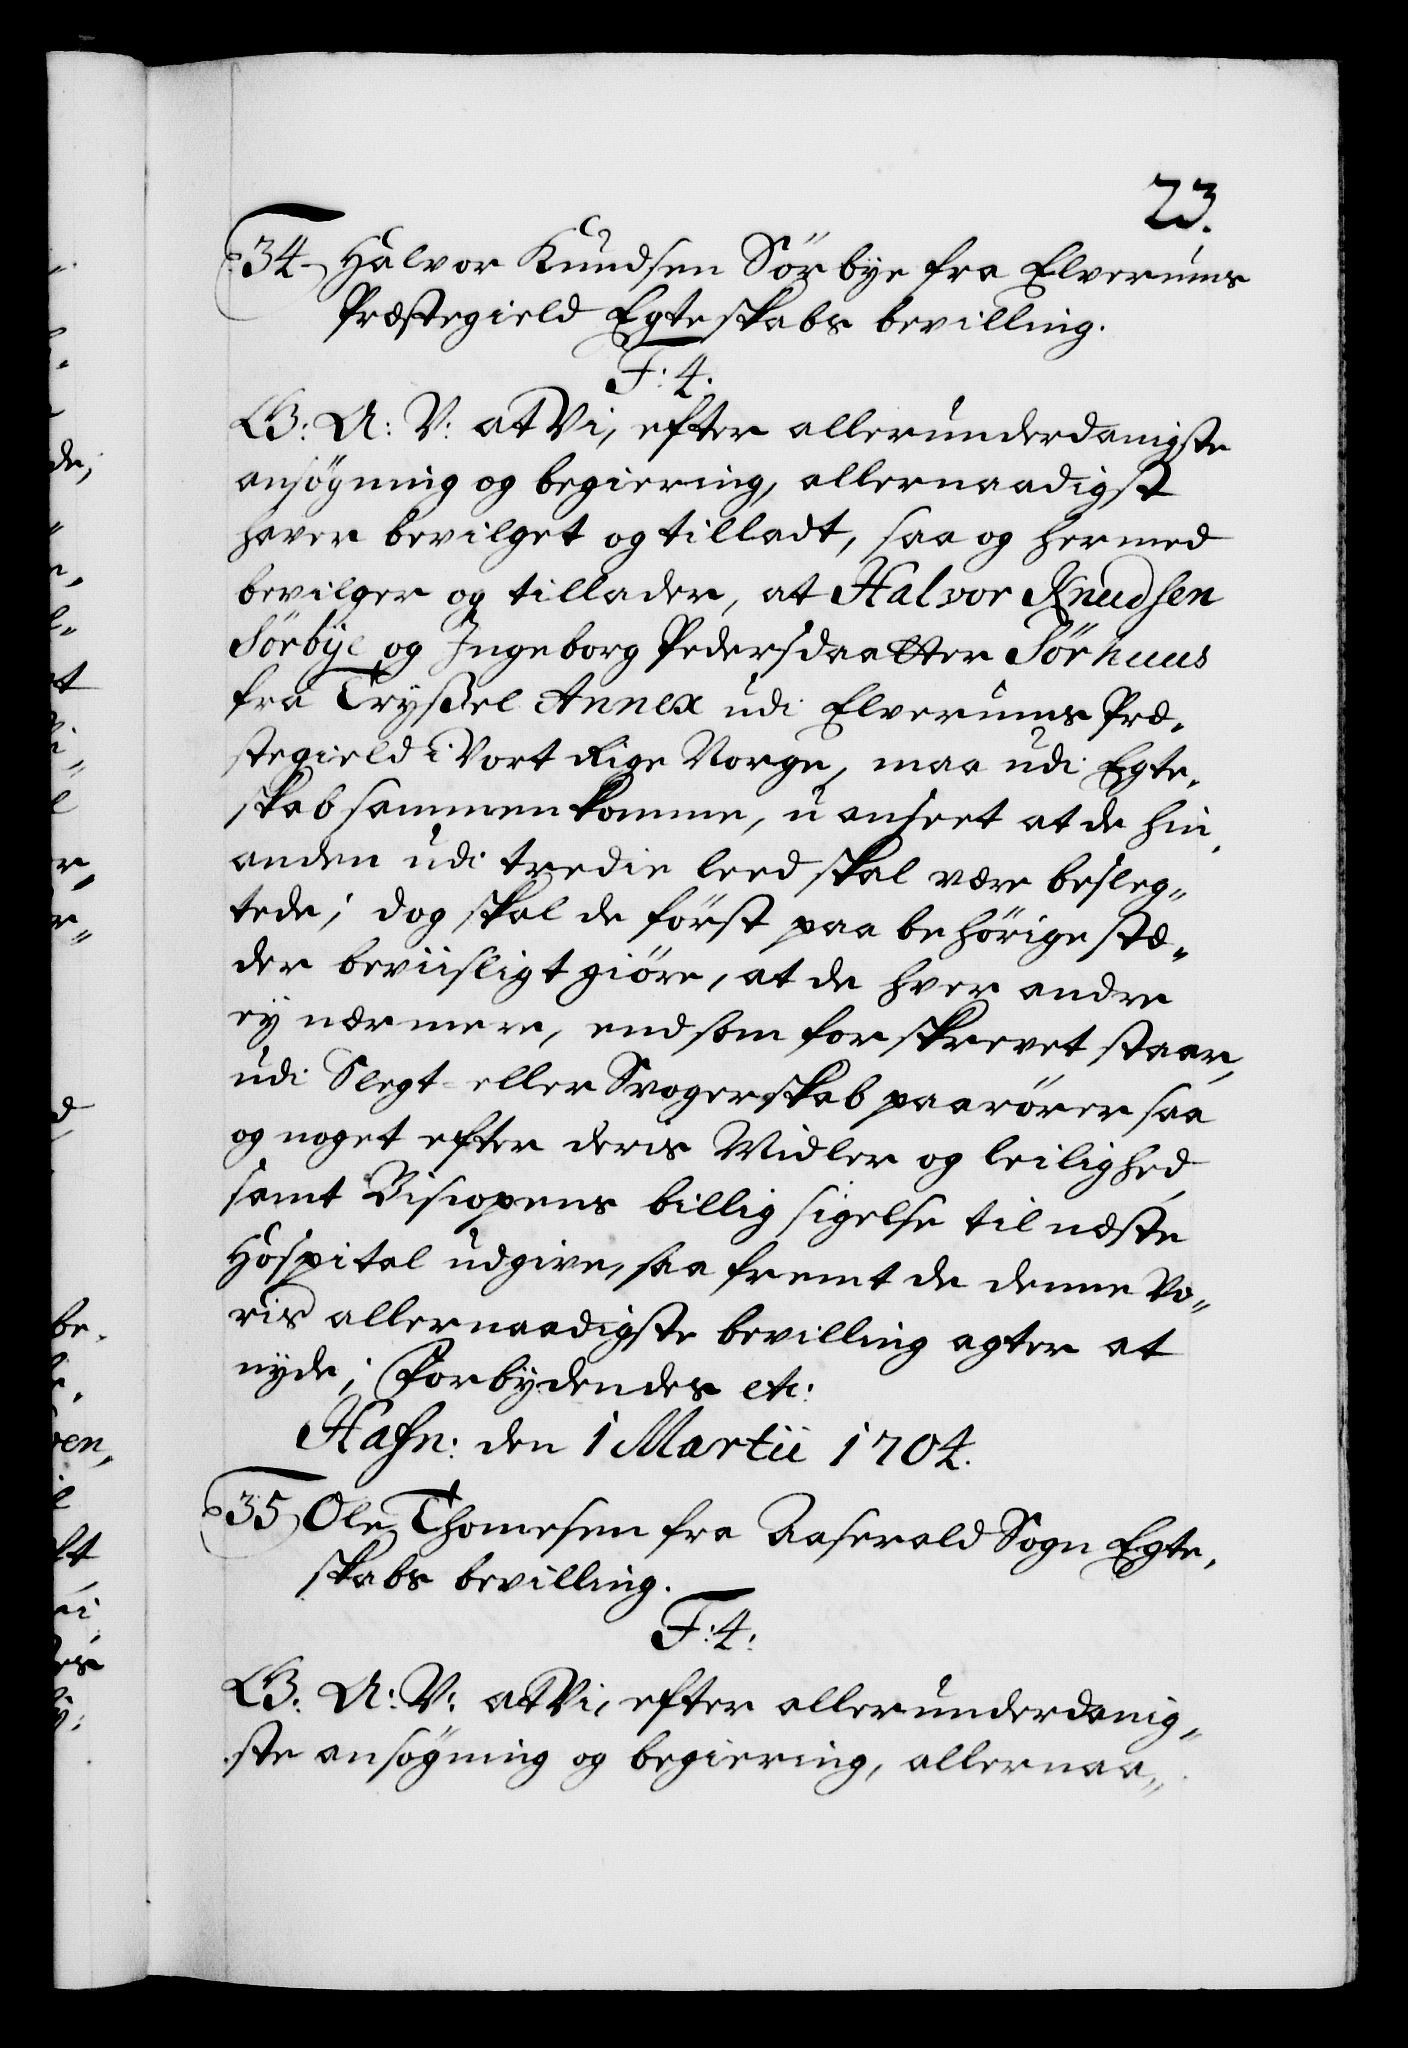 23.
34 Halvor Knudsen Sörbye fra Elverums
Præstegield Egteskabs bevilling.
F: 4.
G: A: V: at Vi, efter allerunderdanigste
ansøgning og begiering, allernaadigst
haver bevilget og tilladt, saa og hermed
bevilger og tillader, at Halvor Knudsen
Sörbye og Ingeborg Pedersdaatter Sörhuus
fra Tryßel Annex udi Elverums Præ-
stegield i Vort Rige Norge, maa udi Egte-
skab sammenkomme, uanseet at de hin-
anden udi tredie leed skal være besleg-
tede; dog skal de först paa behörige stæ-
der beviisligt giöre, at de hver andre
ey nærmere, end som forskrevet staar,
udi Slegt- eller Svogerskab paarörer saa
og noget efter deris Midler og leilighed
samt Biscopens billig sigelse til næste
Hospital udgive, saafremt de denne Vo-
ris allernaadigste bevilling agter at
nyde; Forbydendes etc:
Hafn: den 1 Martii 1704.
35 Ole Thomesen fra Aaserald Sogn Egte-
skabs bevilling.
F: 4:
G: A: V: at Vi, efter allerunderdanig-
ste ansøgning og begiering, allernaa-